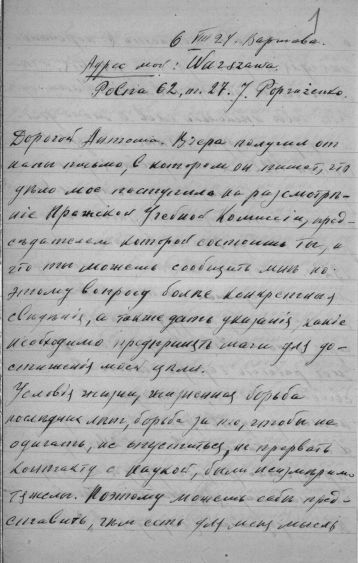 1
6 VIII 24. Варшава.
Адрес мой: Warszawa.
62, m. 27. J.
Дорогой Антоша. Вчера получил от
папы письмо, в котором он пишет, что
дѣло мое поступило на разсмотрѣ-
ніе Пражской Учебной Комиссіи, пред-
сѣдателем которой состоишь ты, и
что ты можешь сообщить мнѣ по
этому вопросу болѣе конкретныя
свѣдѣнія, а также дать указанія какіе
необходимо предпринять шаги для до-
стиженія моей цѣли.
Условія жизни, жизненная борьба
последних лѣт, борьба за то, чтобы не
одичать, не опуститься, не прорвать
контакту с наукой, были неизмѣримо
тяжелы. Поэтому можешь себѣ пред-
ставить, чем есть для меня мысль